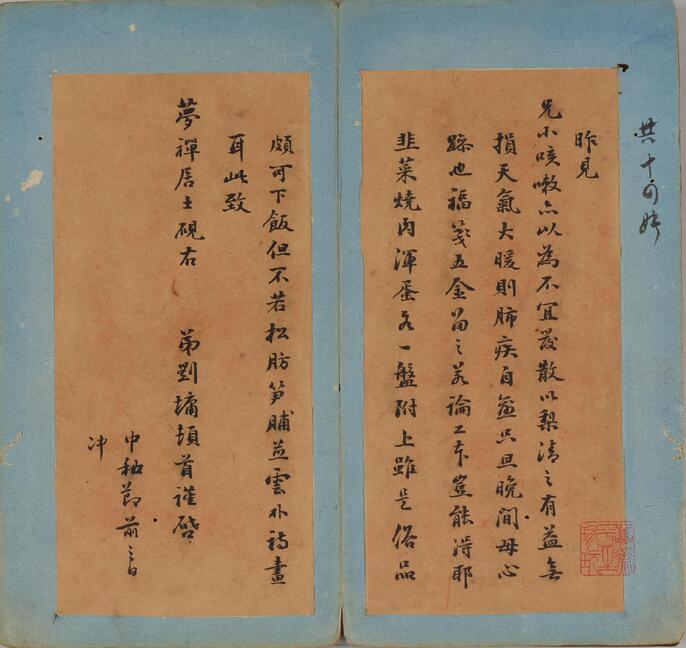 共十
昨見
兄小咳嗽亦以為不宜發散以梨清之有益無
損天氣大暖則肺疾自愈只旦晚間毋心
躁也福箋五金留之若論工本豈能得耶
韭菜燒肉渾蛋各一盤附上雖是俗品
頗可下飯但不若松肪笋脯並雲林詩畫
耳此致
夢禪居士硯右 弟劉墉頓首謹啓
中和節前三日
冲